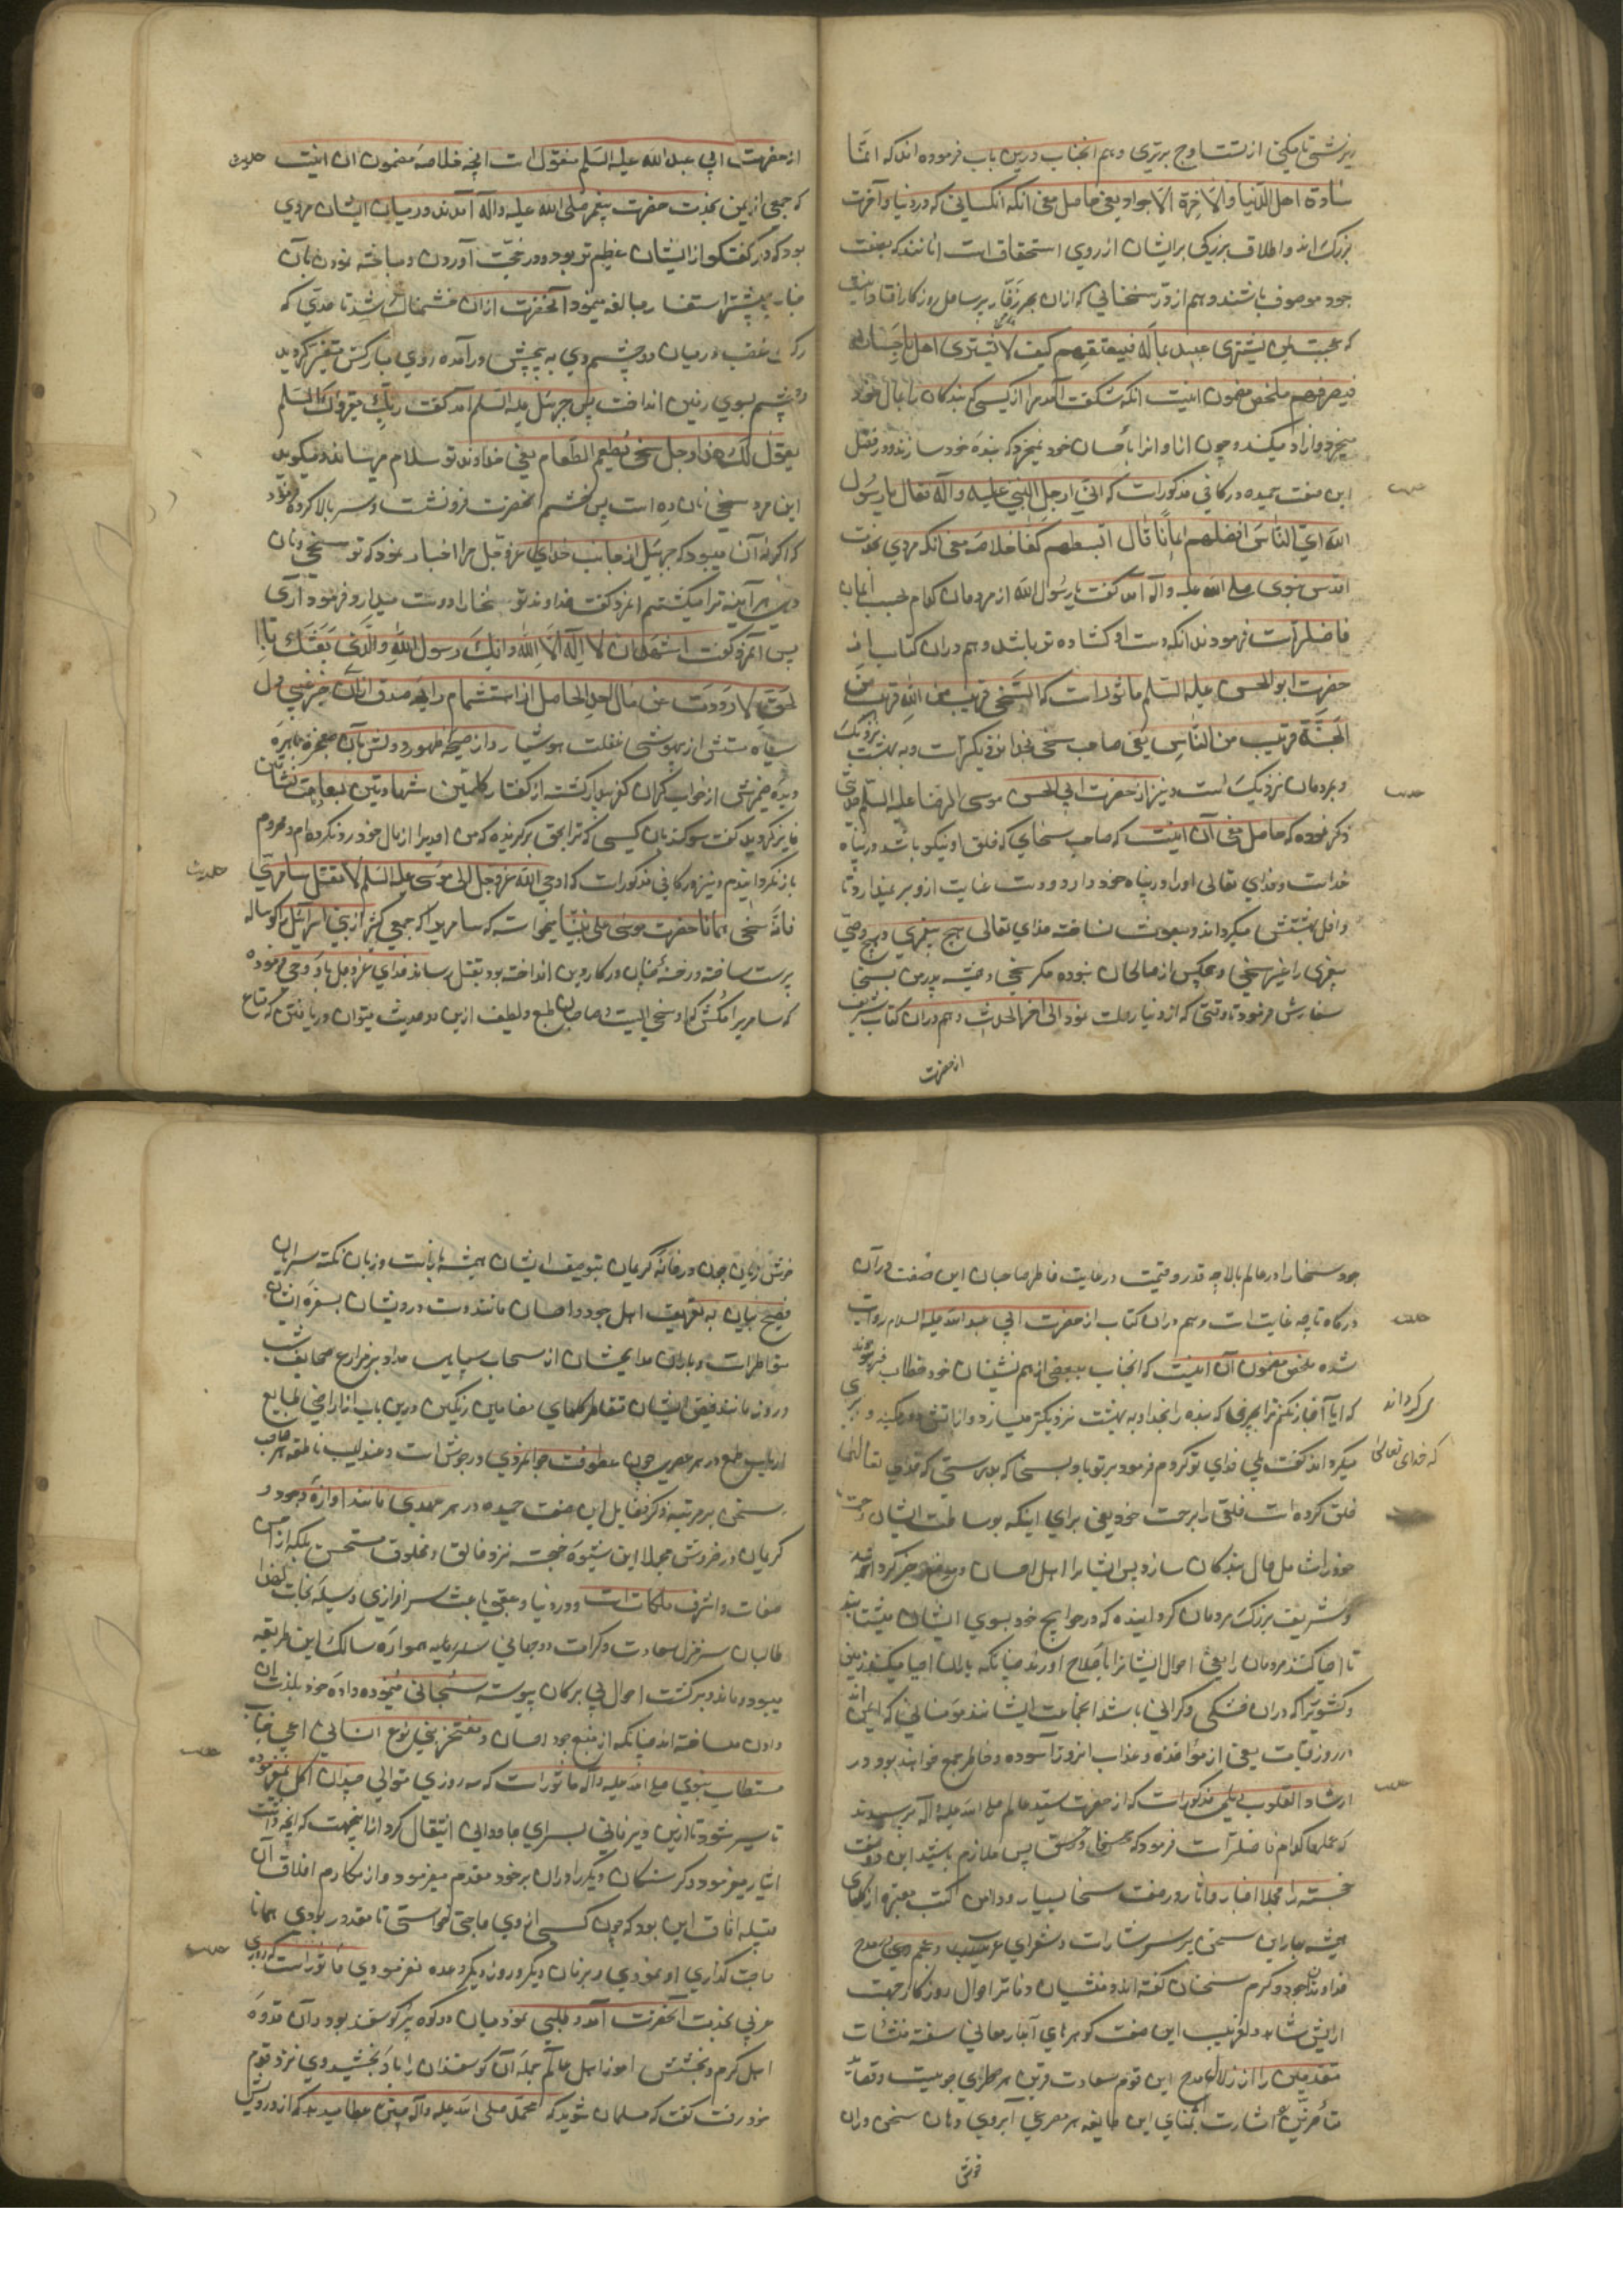 از تست اوج برتری و هم آنجناب درین باب فرموده اند که انما
سادة اهل الدنیا والآخرة الاجواد یعنی حاصل معنی آنکه آنکسانی که در دنیا و آخرت
بزرگ اند و اطلاق بزرگی بر ایشان از روی استحقاق است آنانند که بصفت
جود موصوف باشند و هم از درر سخنانی که ازان بحر زخار بر ساحل روزگار افتاده اینست
که عجبت لمن یشتری عبید بماله فیعتقهم کیف لا یشتری اهل باحسانه
ملخص مضمون اینست آنکه شگفت آمد مرا از کسی که بندگان را بمال خود
میخرد و آزاد میکند و چون آزاد انرا باحسان خود نمیخرد که بنده خود سازند و در فضل
این صفت حمیده در کافی مذکورست که اتی رجل النبی علیه و آله فقال یا رسول
الله ای الناس افضلهم ایمانا قال ابسطهم کفا خلاصه معنی آنکه مردی بخدمت
اقدس نبوی صلی الله علیه و آله آمد گفت یا رسول الله از مردمان کدام بحسب ایمان
فاضلتر است فرمودند آنکه دست او گشاده تر باشد و هم دران کتاب از
حضرت ابو الحسن علیه السلم ماثور است که السخی قریب من الله قریب من
الجنة قریب من الناس یعنی صاحب سخی بخدا نزدیکتر است و به بهشت نزدیک
و بمردمان نزدیک است و نیز از حضرت ابی الحسن موسی الرضا علیه السلم حدیثی
ذکر نموده که حاصل معنی آن اینست که صاحب سخای که خلق او نیکو باشد در پناه
خداست و خدای تعالی او را در پناه خود دارد و دست عنایت ازو بر نمیدارد تا
داخل بهشتش میگرداند و مبعوث نساخته خدای تعالی هیچ پیغمبری و هیچ وصی
پیغمبری را غیر سخی و هیچکس از صالحان نبوده مگر سخی و همیشه پدر من بسخا
سفارش میفرمود تا وقتی که از دنیا رحلت نمود الی آخر الحدیث و هم دران کتاب شریف
از حضرت
حدیث
از حضرت ابی عبد الله علیه السلم منقول است آنچه خلاصه مضمون آن اینست
که جمعی از یمن بخدمت حضرت پیغمبر صلی الله علیه و آله آمدند و در میان ایشان مردی
بود که در گفتگو از ایشان عظیم تر بود و در حجت آوردن و مباحثه نمودن بآن
جناب بیشتر استقصا و مبالغه مینمود آنحضرت ازان خشمناک شد تا حدی که
رگ غضب در میان دو چشم وی به پیچش در آمده روی مبارکش متغیر گردید
و چشم بسوی زمین انداخت پس جبرئیل علیه السلم آمد گفت ربک یقرؤک السلم
یقول لک هذا رجل سخی یطعم الطعام یعنی خداوند تو سلام میرساند و میگوید
این مرد سخی نان ده است پس خشم آنحضرت فرو نشست و سر بالا کرده فرمود
که اگر نه آن میبود که جبرئیل از جانب خدای عز و جل مرا اخبار نمود که تو سخی و نان
دهی هر آینه ترا میکشتم آمرد گفت خداوند تو سخا را دوست میدارد فرمود آری
پس آنمرد گفت اشهد ان لا اله الا الله و انک رسول الله والذی بعثک بالحق
لا رددت عن مالی احدا الحاصل از استشمام رایحه صدق
مستش از بیهوشی غفلت هوشیار و از صیحه ظهور دولتش بآن معجزه باهره
دیده ضمیرش از خواب گران کفر بیدار گشته از گفتار کلمتین شهادتین بسعادت نشأتین
فایز گردید گفت سوگند بآن کسی که ترا بحق برگزیده که من احدیرا از مال خود رد نکرده ام و محروم
باز نگردانیدم و نیز در کافی مذکور است که اوحی الله عز و جل الی موسی علیه السلم لا تقتل سامری
فانه سخی همانا حضرت موسی علی نبینا میخواسته که سامریرا که جمعی کثیر از بنی اسرائیل را گوساله
پرست ساخته و رخنه چنان در کار دین انداخته بود بقتل رساند خدای عز و جل باو وحی فرموده
که سامریرا مکش که او سخی است و صاحبان طبع لطیف ازین دو حدیث میتوان دریافتن که متاع
حدیث
جود سخا را در عالم بالا چه قدر و قیمت و رعایت خاطر صاحبان این صفت در آن
درگاه تا چه غایت است و هم دران کتاب از حضرت ابی عبد الله علیه السلام روایت
شده ملخص مضمون آن اینست که آنجناب ببعضی از هم نشینان خود خطاب فرمودند
که آیا آخبار نکنم ترا بچیزی که بنده را بخدا و به بهشت نزدیکتر میسازد و از آتش دور میکند
میگرداند گفت بلی فدای تو گردم فرمود بر تو باد بسخا که بدرستی که خدای تعالی
خلق کرده است خلقی را برحمت خود یعنی برای اینکه بوساطت ایشان رحمت
خود را شامل حال بندگان سازد پس ایشانرا اهل احسان و موضع خیر گردانید
و شریف بزرگ مردمان گردانیده که در حوایج خود بسوی ایشان میشتابند
تا احیا کنند مردمان را یعنی احوال ایشانرا باصلاح آورند چنانکه باران احیا میکند زمین
و کشوریرا که دران خشکی و گرانی باشد آنجماعت ایشانند مومنانی که ایمن اند
در روز قیامت یعنی از مؤاخذه و عذاب آنروز آسوده و خاطر جمع خواهند بود و در
ارشاد القلوب دیلمی مذکور است که از حضرت سید عالم صلی الله علیه و آله پرسیدند
که عملها کدام فاضلتر است فرمود که سخا و حسن خلق پس ملازم باشید این دو صفت
خجسته را مجملا اخبار و آثار در صفت سخا بسیار و دامن کتب معتبره از گلهای
همیشه بهار این سخن پر سرشار است و شعرای عرب و عجم در مدح
خداوندان جود و کرم سخنان گفته اند و منشیان دفاتر احوال روزگار جهت
آرایش شاهد دلفریب این صفت گوهرهای آبدار معانی سفته منشآت
متقدمین را از زلال مدح این قوم سعادت قرین هر سطری جوییست و قصاید
متأخرین اشارت بثنای این طایفه هر مصرعی آبروی دهان سخن وران
خوش
حدیث
که خدای تعالی
خوش زبان چون در خانه کریمان بتوصیف ایشان همیشه بازست و زبان نکته سرایان
فصیح بیان به تعریف اهل جود و احسان مانند دست درویشان بسفره ایشان
متقاطرات و باران مدایحشان از سحاب سیاه مداد بر مزارع صحایف شب
و روز مانند فیض ایشان متقاطر گلهای مضامین رنگین درین باب از اراضی طبایع
ارباب طبع در هر عصری چون عطوفت جوانمردی در جوش است و عندلیب ناطقه هر صاحب
سخنی بر مرتبه ذکر فضایل این صفت حمیده در هر عهدی مانند آوازه جود و
کریمان در خروش مجملا این شیوه خجسته نزد خالق و مخلوق مستحسن بلکه از احسن
صفات و اشرف ملکات است و در دنیا و عقبی باعث سرافرازی وسیله نجات
طالبان سر منزل سعادت و کرامت دو جهانی سرمایه همواره سالک این طریقه
میبوده اند و سرگشت احوال بی برگان پیوسته سخیانی مینموده داده خود بلذت
دادن معامله ساخته اند چنانکه از منبع جود احسان و مفتخر بنی نوع انسانی اعنی جناب
مستطاب نبوی صلی الله علیه و آله ماثور است که سه روزی متوالی چندان اکل نمیفرموده
تا سیر شود تا ازین دیر فانی بسرای جاودانی انتقال کرد از اینجهت که آنچه داشت
ایثار میفرمود و گرسنگان دیگر را دران بر خود مقدم میفرمود و از مکارم اخلاق آن
قبله آفاق این بود که چون کسی ازوی حاجتی خواستی تا مقدور بودی همانا
حاجت گذاری او نمودی و بزمان دیگر و روز دیگر وعده نفرمودی ماثور است که روزی
عربی بخدمت آنحضرت آمد و طلبی نمود میان دو کوه پر گوسفند بود و آن قدوه
اهل کرم و بخشش آموز اهل عالم جمله آن گوسفندان را باو بخشید وی نزد قوم
خود رفت گفت که مسلمان شوید که محمد صلی الله علیه و آله چنین عطا میدهد که از درویش